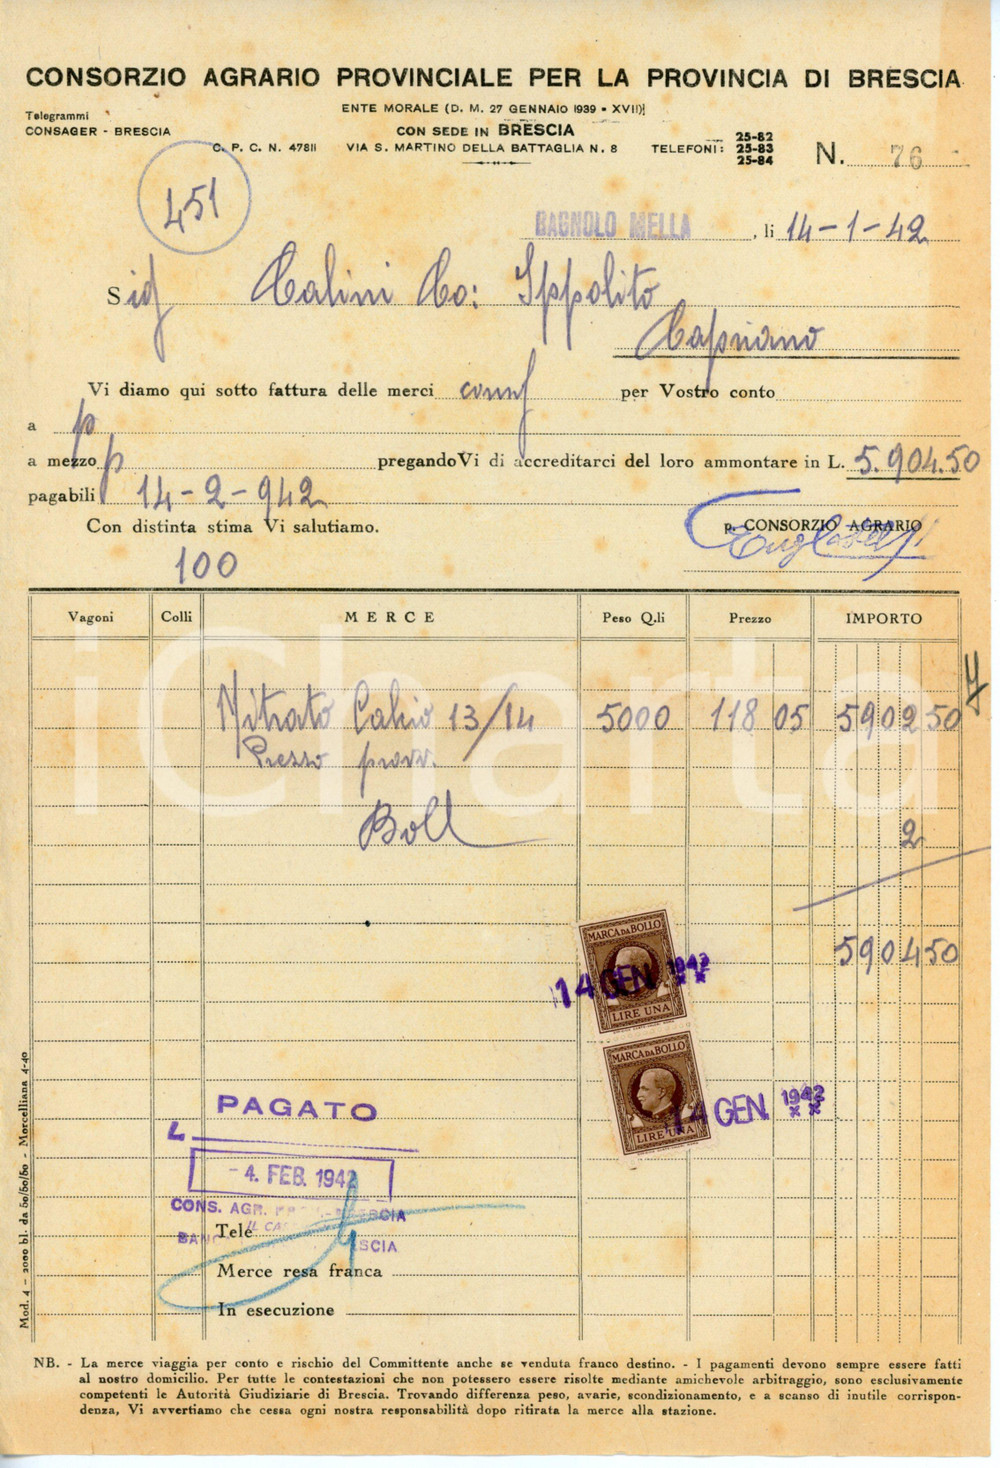 CONSORZIO AGRARIO PROVINCIALE PER LA PROVINCIA DI BRESCIA
Telegrammi
CONSAGER - BRESCIA
ENTE MORALE (D. M. 27 GENNAIO 1939 - XVII)
CON SEDE IN BRESCIA
C. P. C. N. 47811 VIA S. MARTINO DELLA BATTAGLIA N. 8 TELEFONI: 25-82 25-83 25-84
N. 76
451
BAGNOLO MELLA, li 14-1-42
Sig Calini Co: Ippolito
Capriano
Vi diamo qui sotto fattura delle merci conf per Vostro conto
a p
a mezzo p pregandoVi di accreditarci del loro ammontare in L. 5.904.50
pagabili 14-2-942
Con distinta stima Vi salutiamo.
p. CONSORZIO AGRARIO
100
Vagoni Colli MERCE Peso Q.li Prezzo IMPORTO
Nitrato Calcio 13/14 5000 118 05 5902 50
Prezzo provv.
Boll 2
5904 50
MARCA DA BOLLO
LIRE UNA
14 GEN. 1942
MARCA DA BOLLO
LIRE UNA
14 GEN. 1942
PAGATO
L
- 4. FEB. 1942
CONS. AGR. BRESCIA
Tele
Merce resa franca
In esecuzione
Mod. 4 - 2000 bl. da 50/50/50 - Morcelliana 4-40
NB. - La merce viaggia per conto e rischio del Committente anche se venduta franco destino. - I pagamenti devono sempre essere fatti
al nostro domicilio. Per tutte le contestazioni che non potessero essere risolte mediante amichevole arbitraggio, sono esclusivamente
competenti le Autorità Giudiziarie di Brescia. Trovando differenza peso, avarie, scondizionamento, e a scanso di inutile corrispon-
denza, Vi avvertiamo che cessa ogni nostra responsabilità dopo ritirata la merce alla stazione.
iCharta